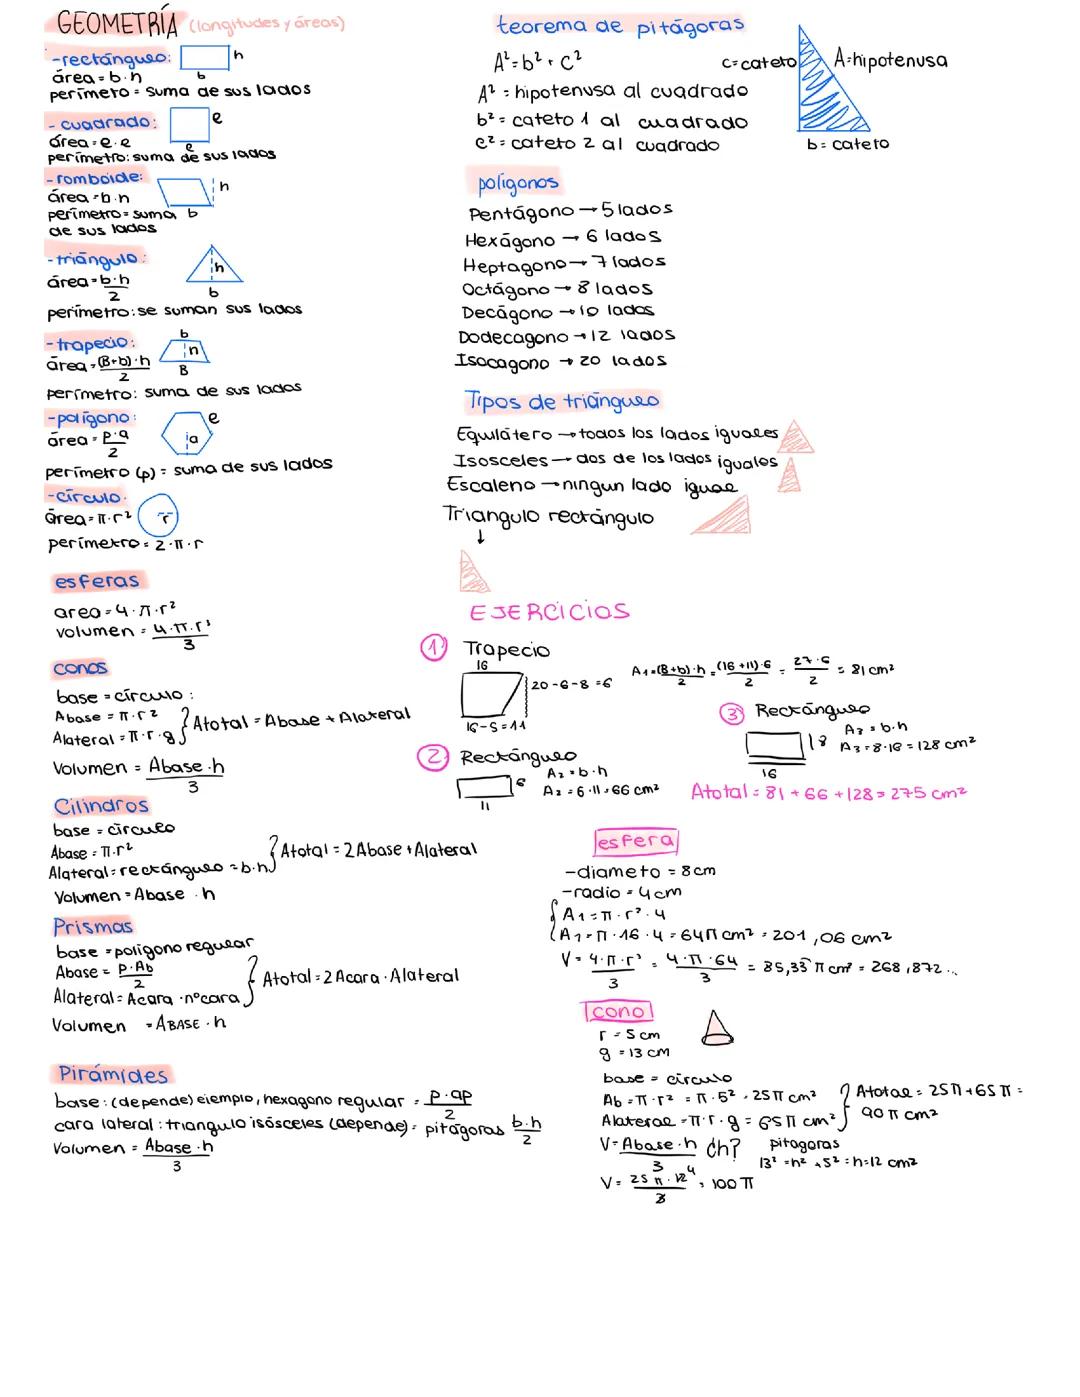 GEOMETRÍA (longitudes y áreas)
-rectángulo:
h
b
área = b·h
perímeto = suma de sus lados
- cuadrado:
e
e
área = e·e
perímetro: suma de sus lados
-romboide:
h
b
área = b·h
perímetro = suma
de sus lados
-triángulo:
h
b
área = b·h
2
perímetro: se suman sus lados
-trapecio:
b
h
B
área = (B+b)·h
2
perímetro: suma de sus lados
-polígono:
e
a
área = p·a
2
perímetro (p) = suma de sus lados
-círculo:
r
área = π·r²
perímetro = 2·π·r
esferas
area = 4·π·r²
volumen = 4·π·r³
3
conos
base = círculo:
Abase = π·r²
Alateral = π·r·g
Atotal = Abase + Alateral
Volumen = Abase·h
3
Cilindros
base = círculo
Abase = π·r²
Alateral = rectángulo = b·h
Atotal = 2Abase + Alateral
Volumen = Abase·h
Prismas
base = polígono regular
Abase = P·Ab
2
Alateral = Acara·nºcara
Atotal = 2Acara·Alateral
Volumen = ABASE·h
Pirámides
base: (depende) ejemplo, hexágono regular = p·ap
2
cara lateral: triangulo isósceles (depende) = pitágoras b·h
2
Volumen = Abase·h
3
teorema de pitágoras
A² = b² + c²
A² = hipotenusa al cuadrado
b² = cateto 1 al cuadrado
c² = cateto 2 al cuadrado
c = cateto
A = hipotenusa
b = cateto
polígonos
Pentágono → 5 lados
Hexágono → 6 lados
Heptagono → 7 lados
Octágono → 8 lados
Decágono → 10 lados
Dodecagono → 12 lados
Isocagono → 20 lados
Tipos de triángulo
Equilátero → todos los lados iguales
Isosceles → dos de los lados iguales
Escaleno → ningun lado igual
Triangulo rectángulo
↓
EJERCICIOS
1 Trapecio
16
20-6-8=6
16-5=11
A1 = (B+b)·h = (16+11)·6 = 27·6 = 81 cm²
2 2 2
2 Rectángulo
6
11
A2 = b·h
A2 = 6·11 = 66 cm²
3 Rectángulo
8
16
A3 = b·h
A3 = 8·16 = 128 cm²
Atotal = 81 + 66 + 128 = 275 cm²
esfera
-diameto = 8cm
-radio = 4cm
A1 = π·r²·4
A1 = π·16·4 = 64π cm² = 201,06 cm²
V = 4·π·r³ = 4·π·64 = 85,33 π cm³ = 268,872...
3 3
cono
r = 5cm
g = 13 cm
base = círculo
Ab = π·r² = π·5² = 25π cm²
Alateral = π·r·g = 65π cm²
Atotal = 25π + 65π =
90 π cm²
V = Abase·h ¿h?
3
pitagoras
13² = h² + 5² = h=12 cm²
V = 25 π·12 4 = 100 π
3